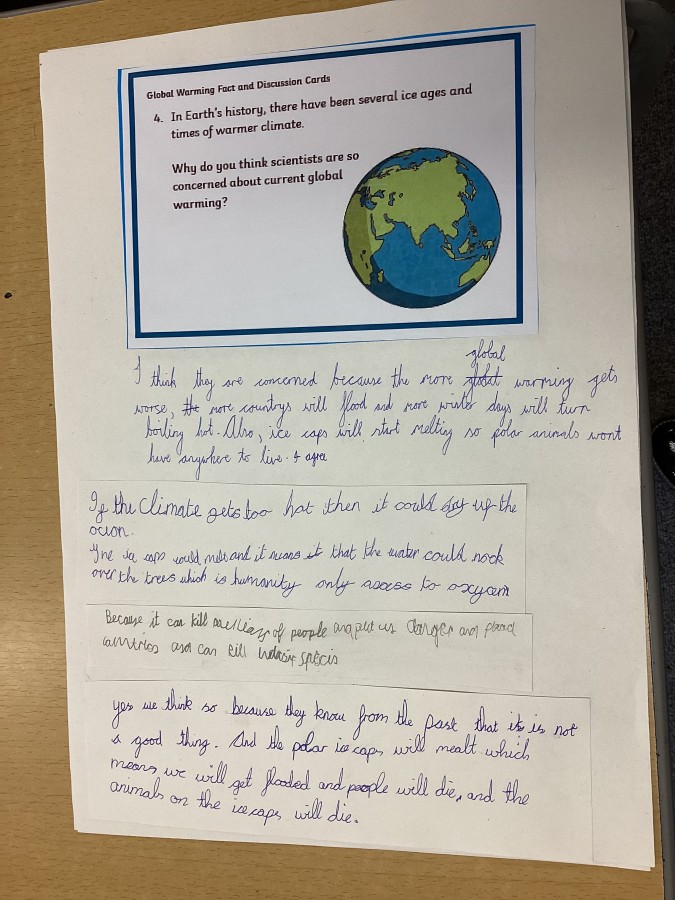 Global Warming Fact and Discussion Cards
4. In Earth's history, there have been several ice ages and
times of warmer climate.
Why do you think scientists are so
concerned about current global
warming?
global
I think they are concerned because the more globat warming gets
worse, the more countrys will flood and more winter days will turn
boiling hot. Also, ice caps will start melting so polar animals wont
have anywhere to live. I agree
If the Climate gets too hot then it could dry up the
ocion.
ice caps would melt and it means it that the water could nock
over the trees which is humanity only access to oxygen
Because it can kill of people and put us danger and flood
countries and can kill specis
yes we think so because they know from the past that it is not
a good thing. And the polar ice caps will mealt which
means we will get flooded and people will die, and the
animals on the ice caps will die.